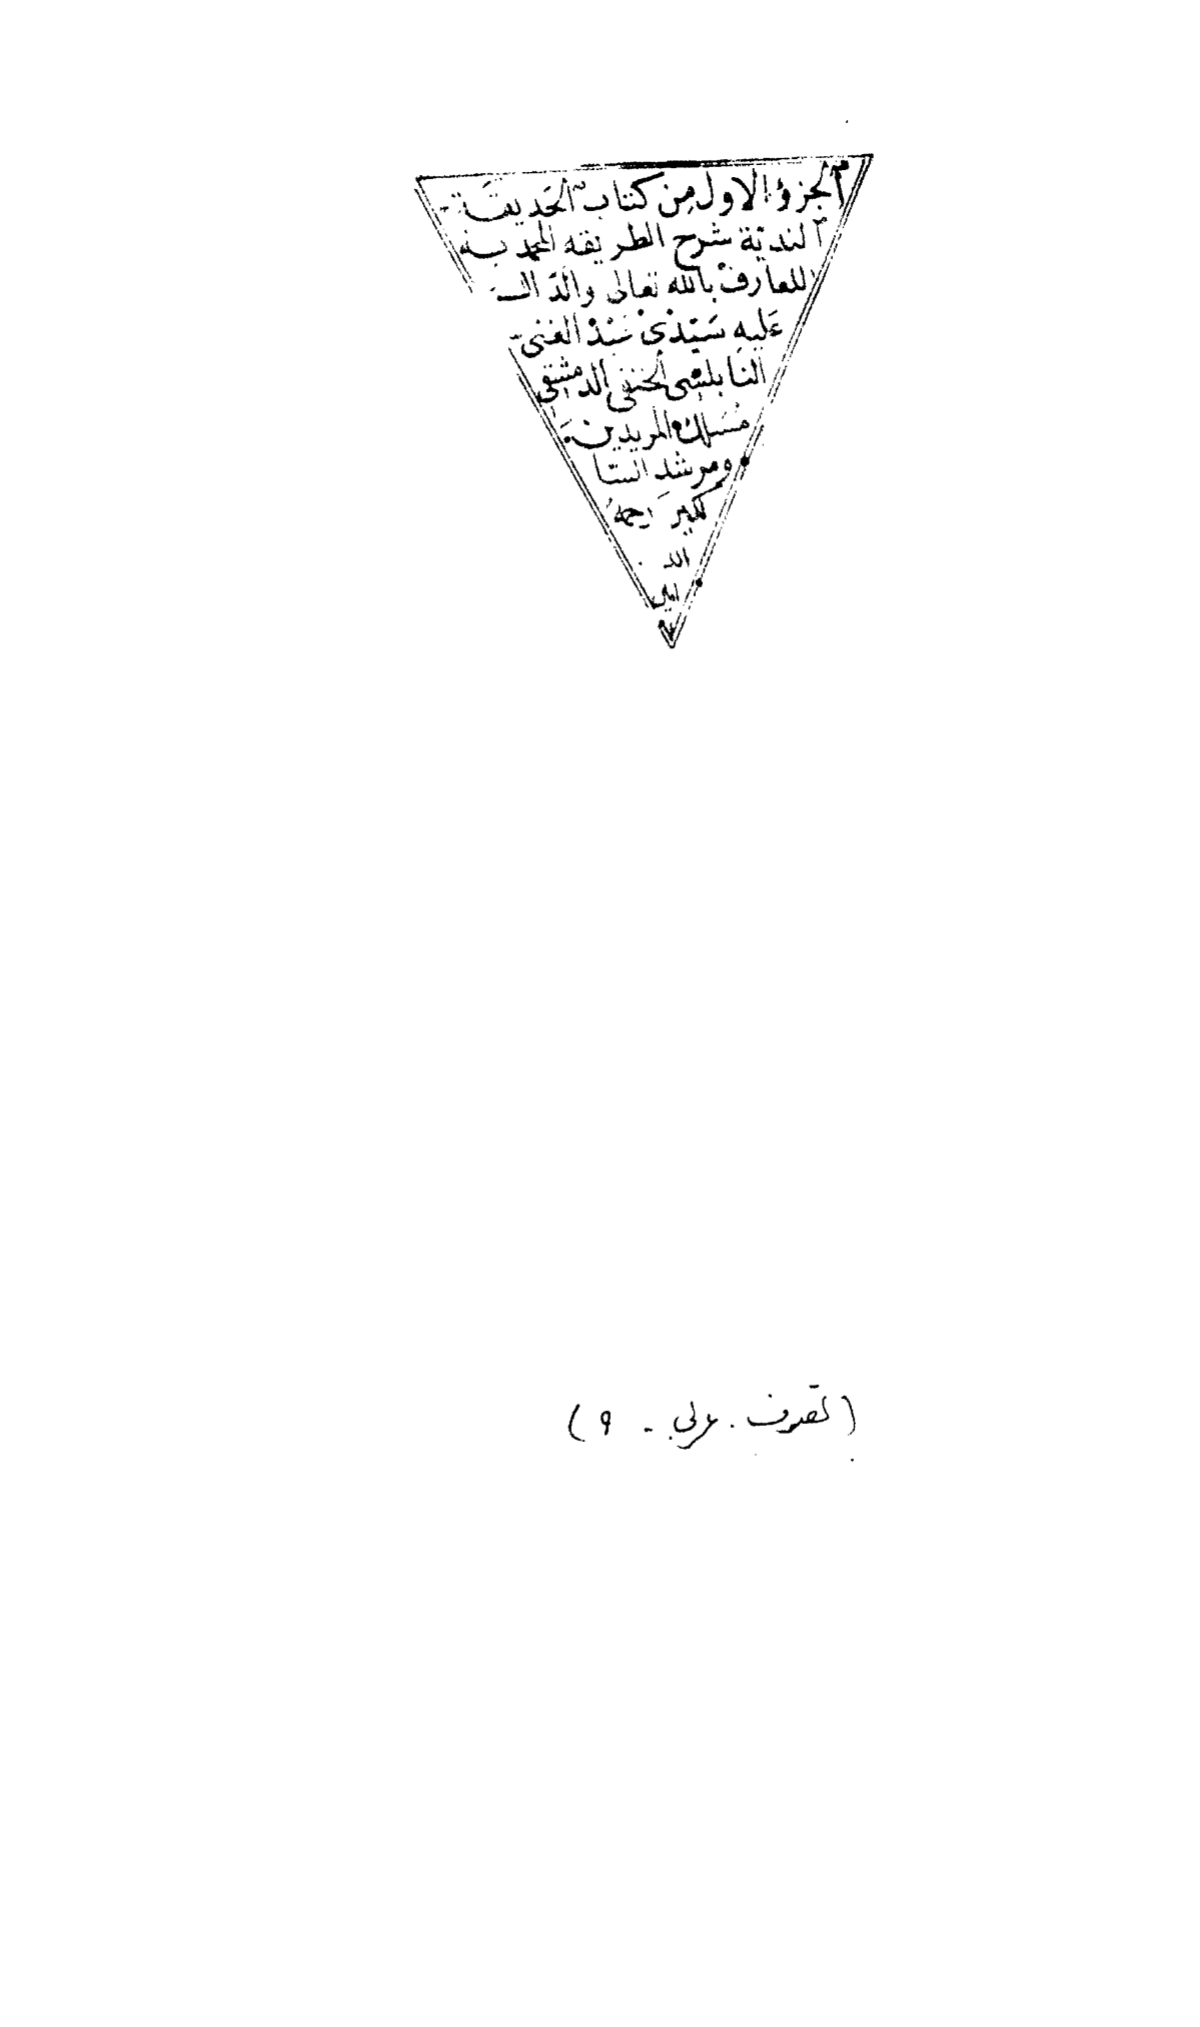 الجزؤ الاول من كتاب الحديقة
الندية شرح الطريقه المحمديه
للعارف بالله تعالى والدال
عليه سيدى عبد الغنى
النابلسى الحنفى الدمشقى
مسلك المريدين
ومرشد السا
لكين رحمه
الله
(تصوف. عربى - ٩)